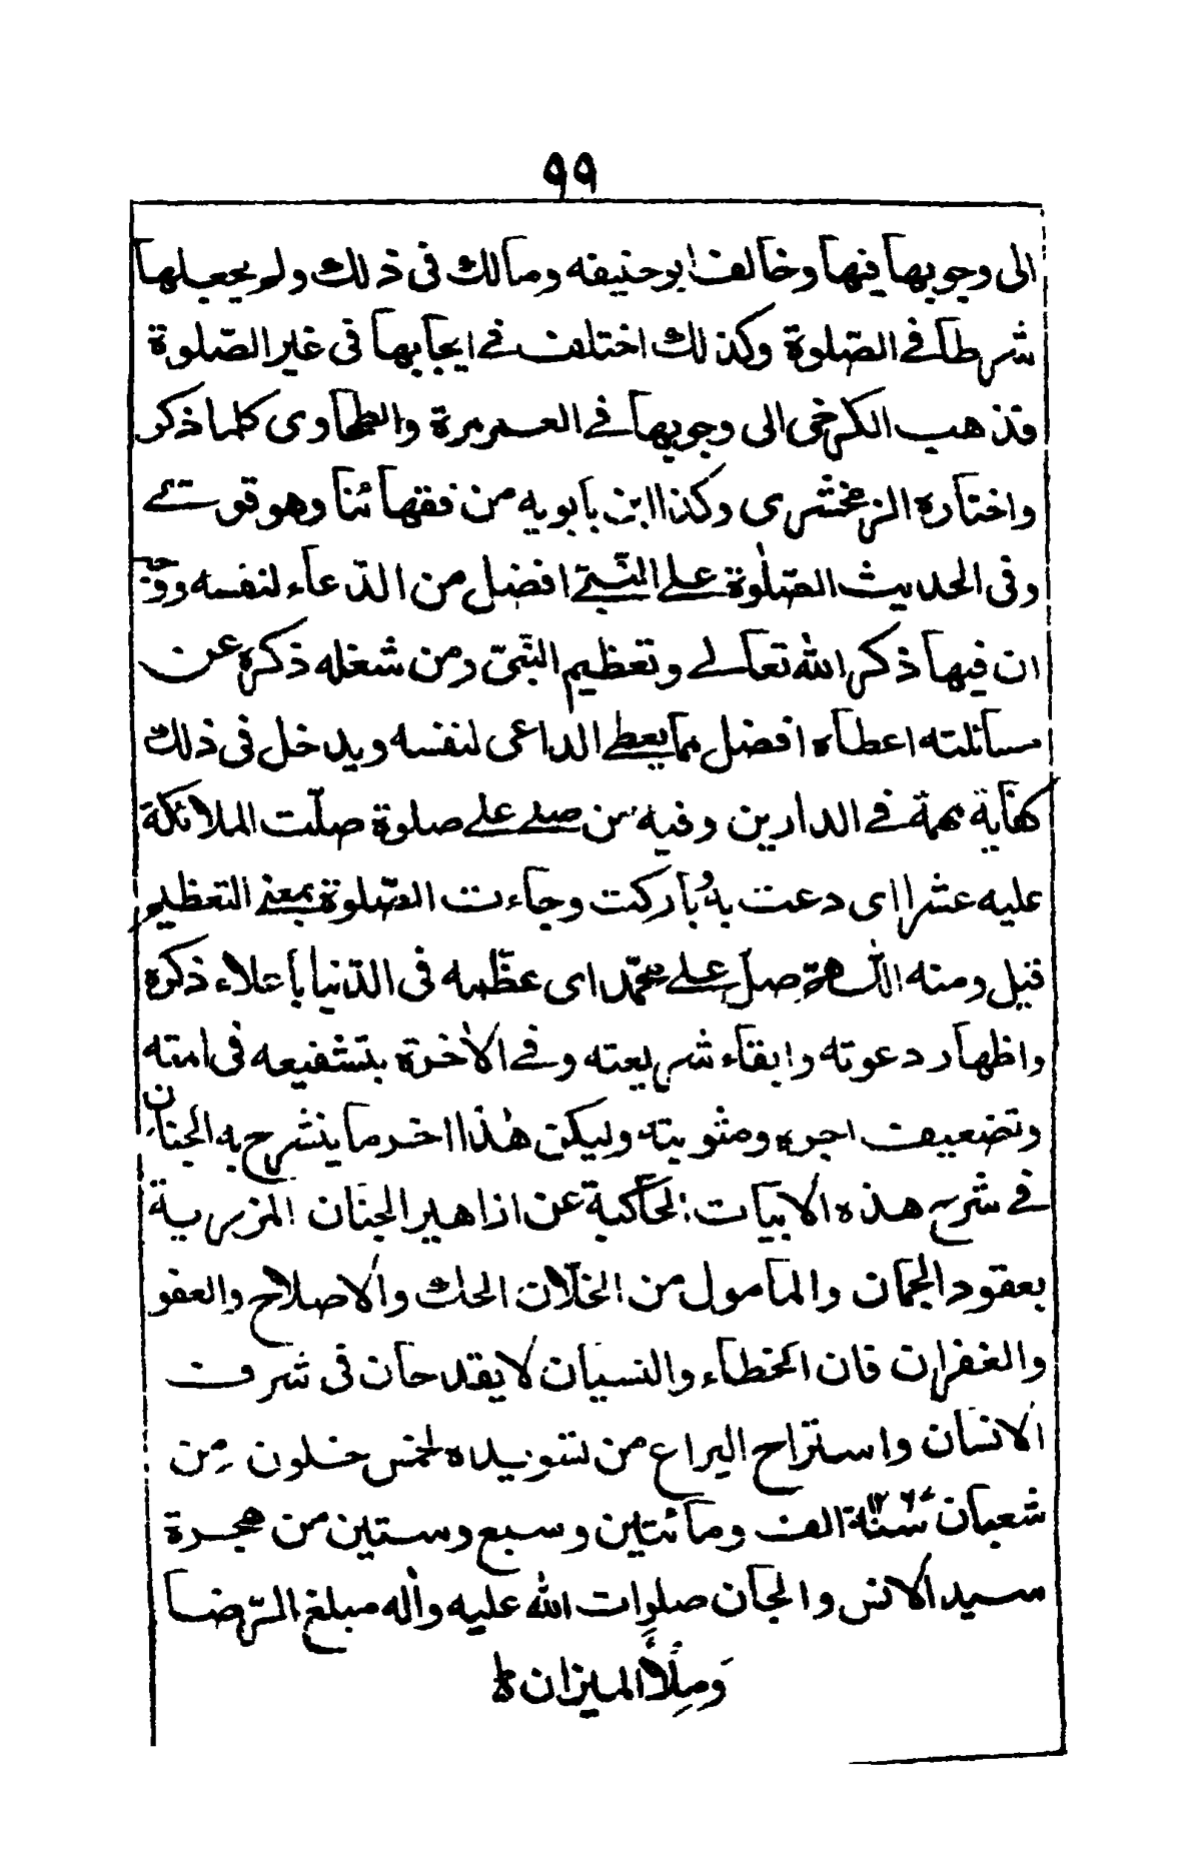 ٩٩
الى وجوبها فيها وخالف ابو حنيفه ومالك فى ذلك ولم يجعلها
شرطا فى الصّلوة وكذلك اختلف فى ايجابها فى غير الصّلوة
فذهب الكرخى الى وجوبها فى العمر مرة والطحاوى كلما ذكر
واختاره الزمخشرى وكذا ابن بابويه من فقهائنا وهو قوى
وفى الحديث الصّلوة على النّبىّ افضل من الدّعاء لنفسه ووجّه
ان فيها ذكر الله تعالى وتعظيم النّبىّ ومن شغله ذكره عن
مسائلته اعطاه افضل مما يعطى الداعى لنفسه ويدخل فى ذلك
كفاية همة فى الدارين وفيه من صلى على صلوة صلّت الملائكة
عليه عشرا اى دعت به وباركت وجاءت الصّلوة بمعنى التعظيم
قيل ومنه اللّهمّ صلّ على محمّد اى عظّمه فى الدّنيا باعلاء ذكره
واظهار دعوته وابقاء شريعته وفى الاخرة بتشفيعه فى امته
وتضعيف اجره ومثوبته وليكن هذا اخر ما ينشرح به الجنان
فى شرح هذه الابيات الحاكية عن ازاهير الجنان المزرية
بعقود الجمان والمامول من الخلّان الحك والاصلاح والعفو
والغفران فان الخطاء والنسيان لا يقدحان فى شرف
الانسان واستراح اليراع من تسويده لخمس خلون من
شعبان سنة ١٢٦٧ الف ومائتين وسبع وستين من هجرة
سيد الانس والجان صلوات الله عليه واٰله مبلغ الرّضا
وَمِلأَ الميزان ط